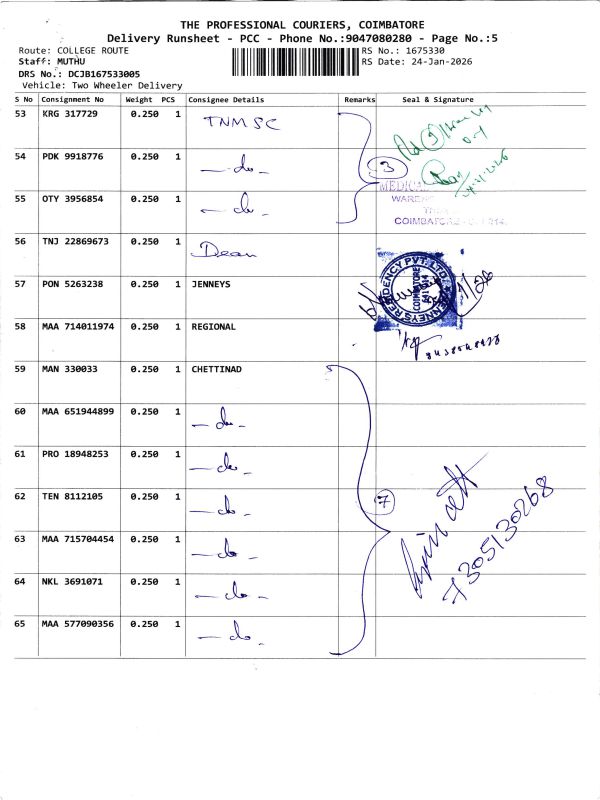 THE PROFESSIONAL COURIERS, COIMBATORE
Delivery Runsheet - PCC - Phone No.:9047080280 - Page No.:5
Route: COLLEGE ROUTE
RS No.: 1675330
Staff: MUTHU
RS Date: 24-Jan-2026
DRS No.: DCJB167533005
Vehicle: Two Wheeler Delivery
S No Consignment No Weight PCS Consignee Details Remarks Seal & Signature
53 KRG 317729 0.250 1 TNMSC
54 PDK 9918776 0.250 1 - do - 3
MEDICAL
55 OTY 3956854 0.250 1 - do -
COIMBATORE
56 TNJ 22869673 0.250 1 Dean
57 PON 5263238 0.250 1 JENNEYS
JENNEYS RESIDENCY PVT. LTD.
COIMBATORE
641 014
58 MAA 714011974 0.250 1 REGIONAL
59 MAN 330033 0.250 1 CHETTINAD
60 MAA 651944899 0.250 1 - do -
61 PRO 18948253 0.250 1 - do -
62 TEN 8112105 0.250 1 - do - 7
63 MAA 715704454 0.250 1 - do -
64 NKL 3691071 0.250 1 - do -
65 MAA 577090356 0.250 1 - do -
7305130268